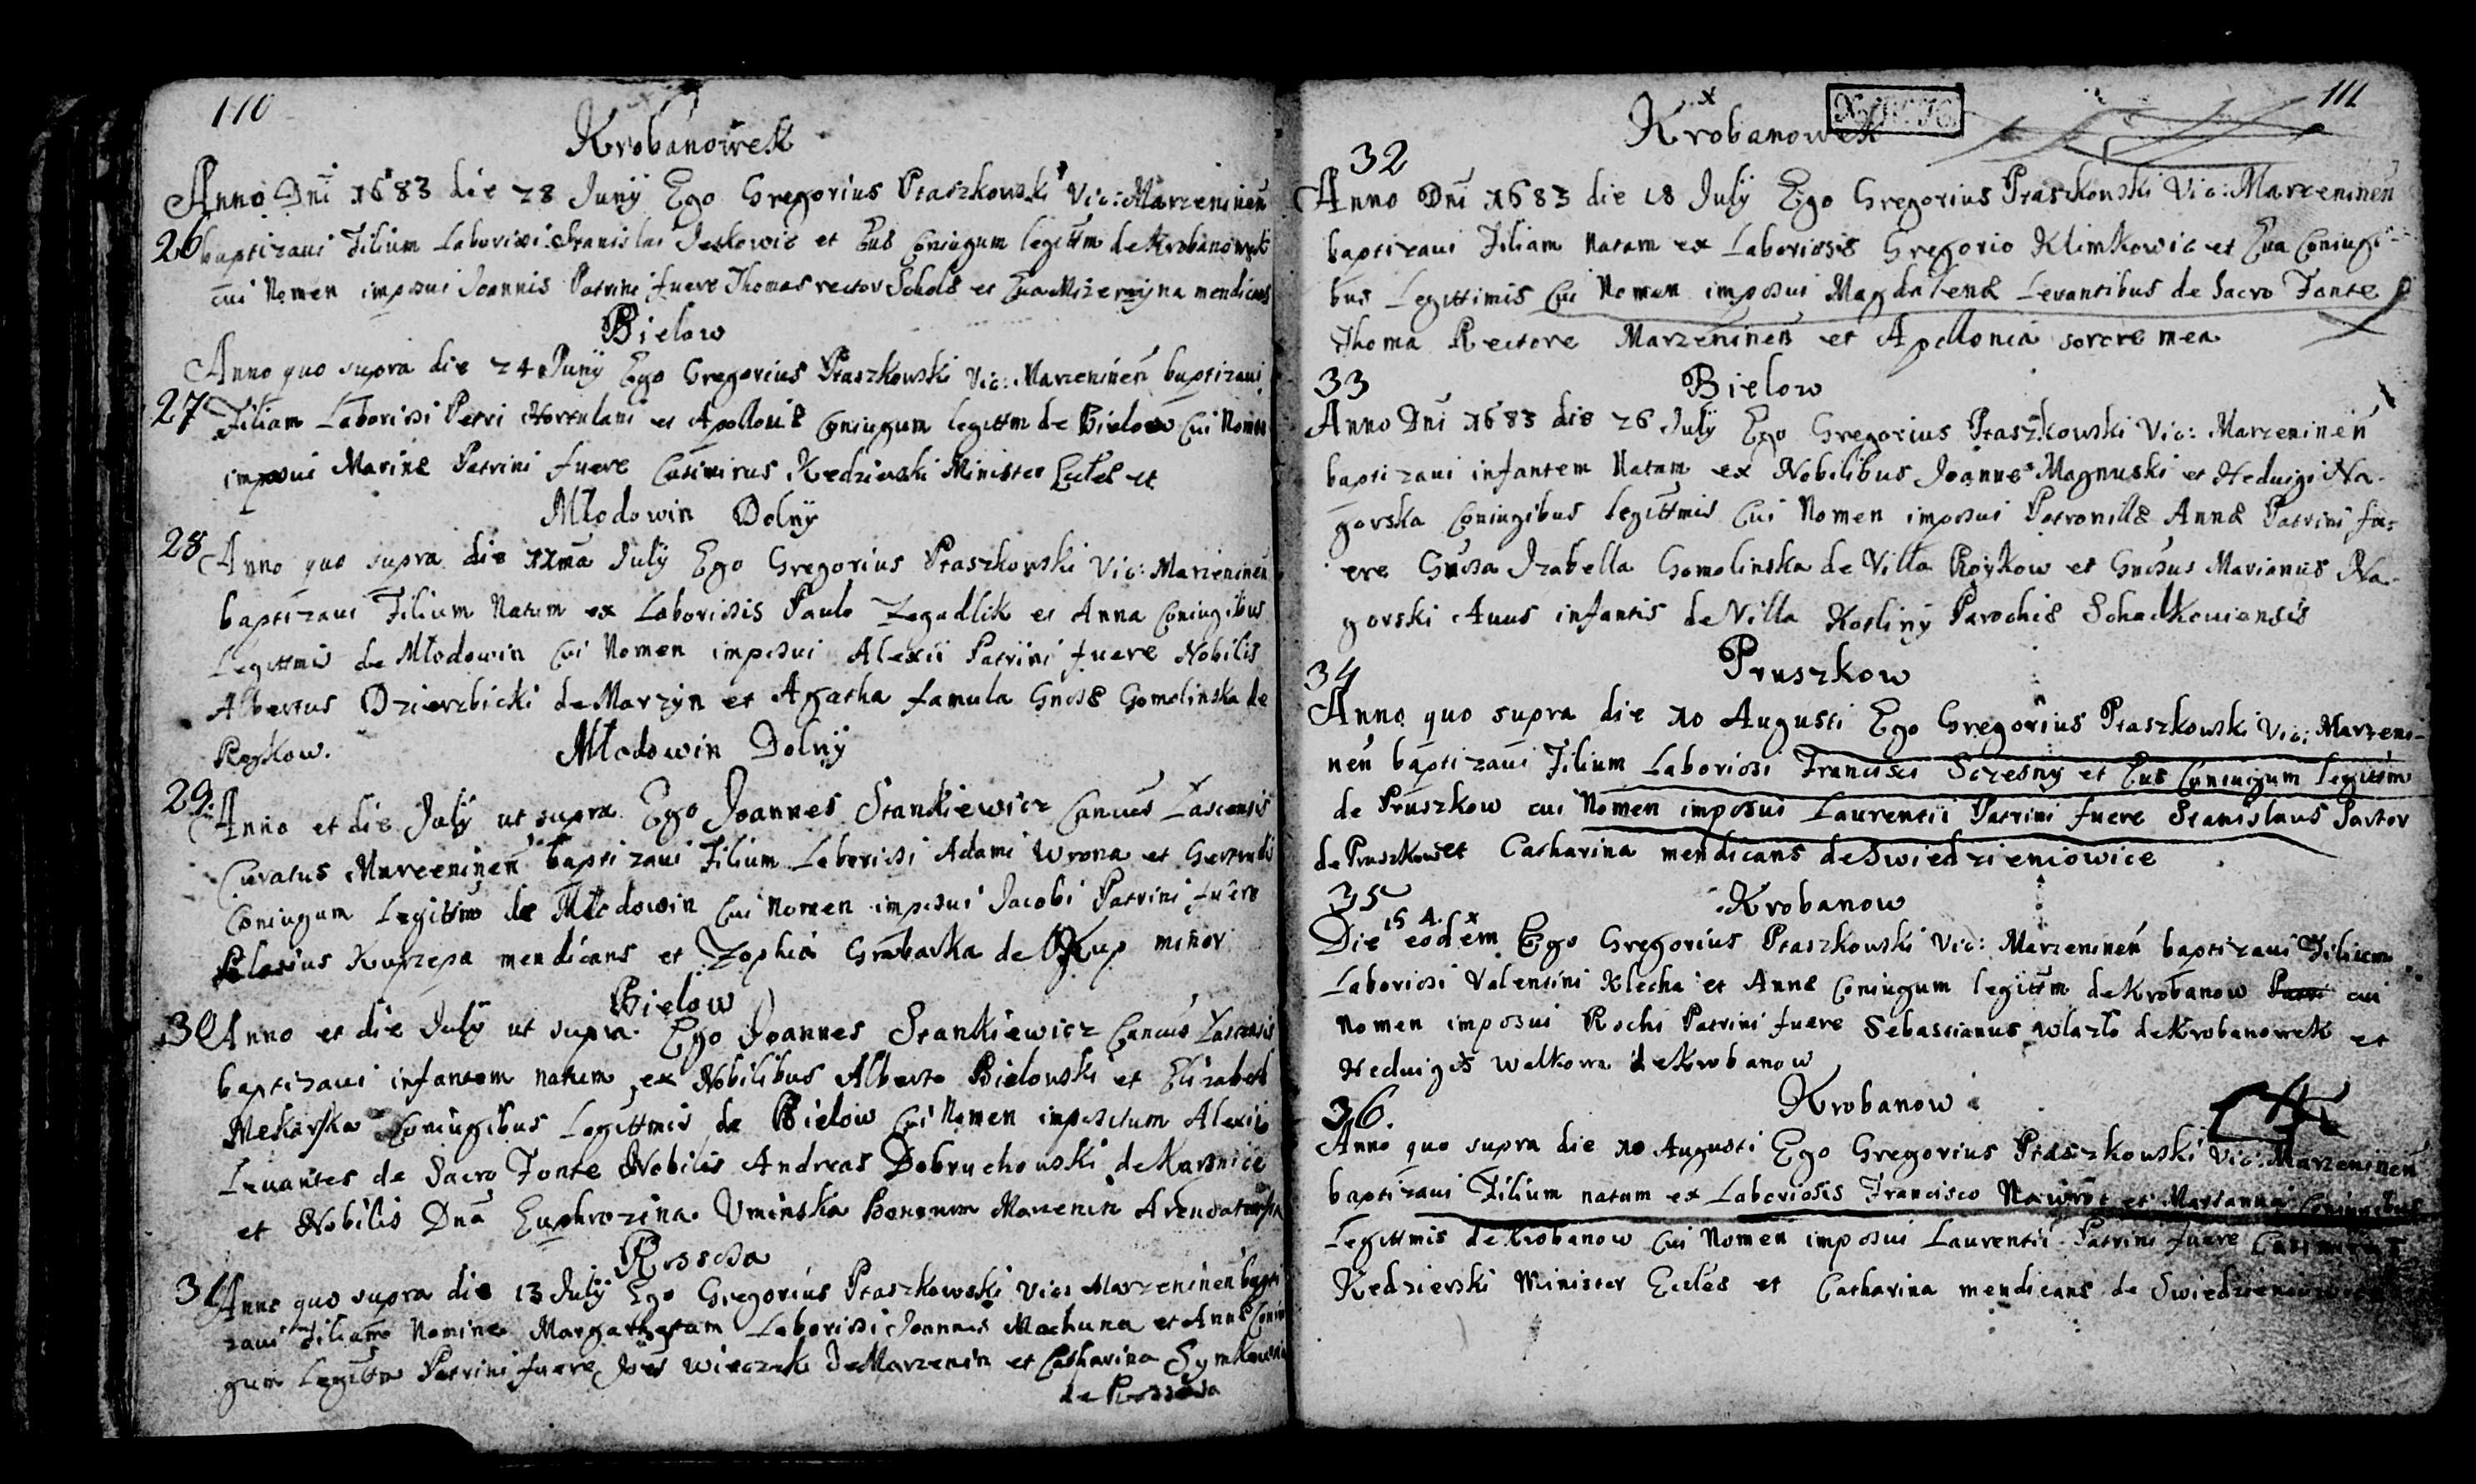 110
Krobanowek
Anno Dni 1683 die 28 Juny Ego Gregorius Ptaszkowski Vic: Marzeninen
26 baptizaui Filium Laboriosi Stanislai et Euæ Coniugum legittm de Krobanowek
cui Nomen imposui Joannis Patrini fuere Thomas rector Scholæ et Eua mendicans
Bielow
Anno quo supra die 24 Juny Ego Gregorius Ptaszkowski Vic: Marzeninen baptizaui
27 Filiam Laboriosi Petri Hortulani et Apolloniæ Coniugum legittm de Bielow Cui Nomen
imposui Marinæ Patrini fuere Casimirus Kedzierski Minister Eccles et
Młodowin Dolny
28 Anno quo supra die July Ego Gregorius Ptaszkowski Vic: Marzeninen
baptizaui Filium Natum ex Laboriosis Paulo Zegadlik et Anna Coniugibus
Legittmis de Młodowin Cui Nomen imposui Alexii Patrini fuere Nobilis
Albertus Dzierzbicki de Marzyn et Agatha famula Gnosæ Gomolinska de
Roykow.
Młodowin Dolny
29. Anno et die July ut supra Ego Joannes Stankiewicz Lascensis
Curatus baptizaui Filium Laboriosi Adami Wrona et Gertrudis
Coniugum Legittm de Młodowin Cui Nomen imposui Jacobi Patrini fuere
Kurzepa mendicans et Zophia Grabarka de minor
Bielow
30 Anno et die July ut supra Ego Joannes Stankiewicz
baptizaui infantem natum ex Nobilibus Alberto Bielowski et Elizabeth
Mekarska Coniugibus Legittmis de Bielow Cui Nomen impositum Alexii
Leuantes de Sacro Fonte Nobilis Andreas Dobruchowski de Karsnice
et Nobilis Dna Euphrozina Uminska Bonorum Marzenin
Rossosa
31 Anno quo supra die 13 July Ego Gregorius Ptaszkowski Vic: Marzeninen bapti
zaui Filiam Nomine Margarhetam Laboriosi Joannis Machuna et Annæ Coniu
gum Legittm Patrini fuere Joes Wieczek de Marzenin et Catharina
de Rossosa
111
Krobanowek
32
Anno Dni 1683 die 18 July Ego Gregorius Ptaszkowski Vic: Marzeninen
baptizaui Filiam Natam ex Laboriosis Gregorio Klimkowic et Eua Coniugi-
bus Legittimis Cui Nomen imposui Magdalenæ Leuantibus de Sacro Fonte
Thoma Rectore Marzeninen et Apollonia sorore mea
33
Bielow
Anno Dni 1683 die 26 July Ego Gregorius Ptaszkowski Vic: Marzeninen
baptizaui infantem Natam ex Nobilibus Joanne Magnuski et Heduigi Na-
gorska Coniugibus legittmis Cui Nomen imposui Petronillæ Annæ Patrini fu-
ere Gnosa Izabella Gomolinska de Villa Roykow et Gnosus Marianus Na-
gorski Auus infantis de Villa Kotliny Parochiæ Schadkouiensis
34
Pruszkow
Anno quo supra die 10 Augusti Ego Gregorius Ptaszkowski Vic: Marzeni-
nen baptizaui Filium Laboriosi Francisci Sczesny et Euæ Coniugum legittm
de Pruszkow cui Nomen imposui Laurentii Patrini fuere Stanislaus Sartor
de Pruszkow et Catharina mendicans de Swiedzieniowice
35
Krobanow
Die 15 A. eodem Ego Gregorius Ptaszkowski Vic: Marzeninen baptizaui Filium
Laboriosi Valentini Klecha et Annæ Coniugum legittm de Krobanow cui
Nomen imposui Rochi Patrini fuere Sebastianus Wlazło de Krobanowek et
Heduigis Walkowa de Krobanow
Krobanow
36.
Anno quo supra die 10 Augusti Ego Gregorius Ptaszkowski Vic: Marzeninen
baptizaui Filium natum ex Laboriosis Francisco et Marianna Coniugibus
Legittmis de Krobanow Cui Nomen imposui Laurentii Patrini fuere Casimirus
Kedzierski Minister Eccles et Catharina mendicans de